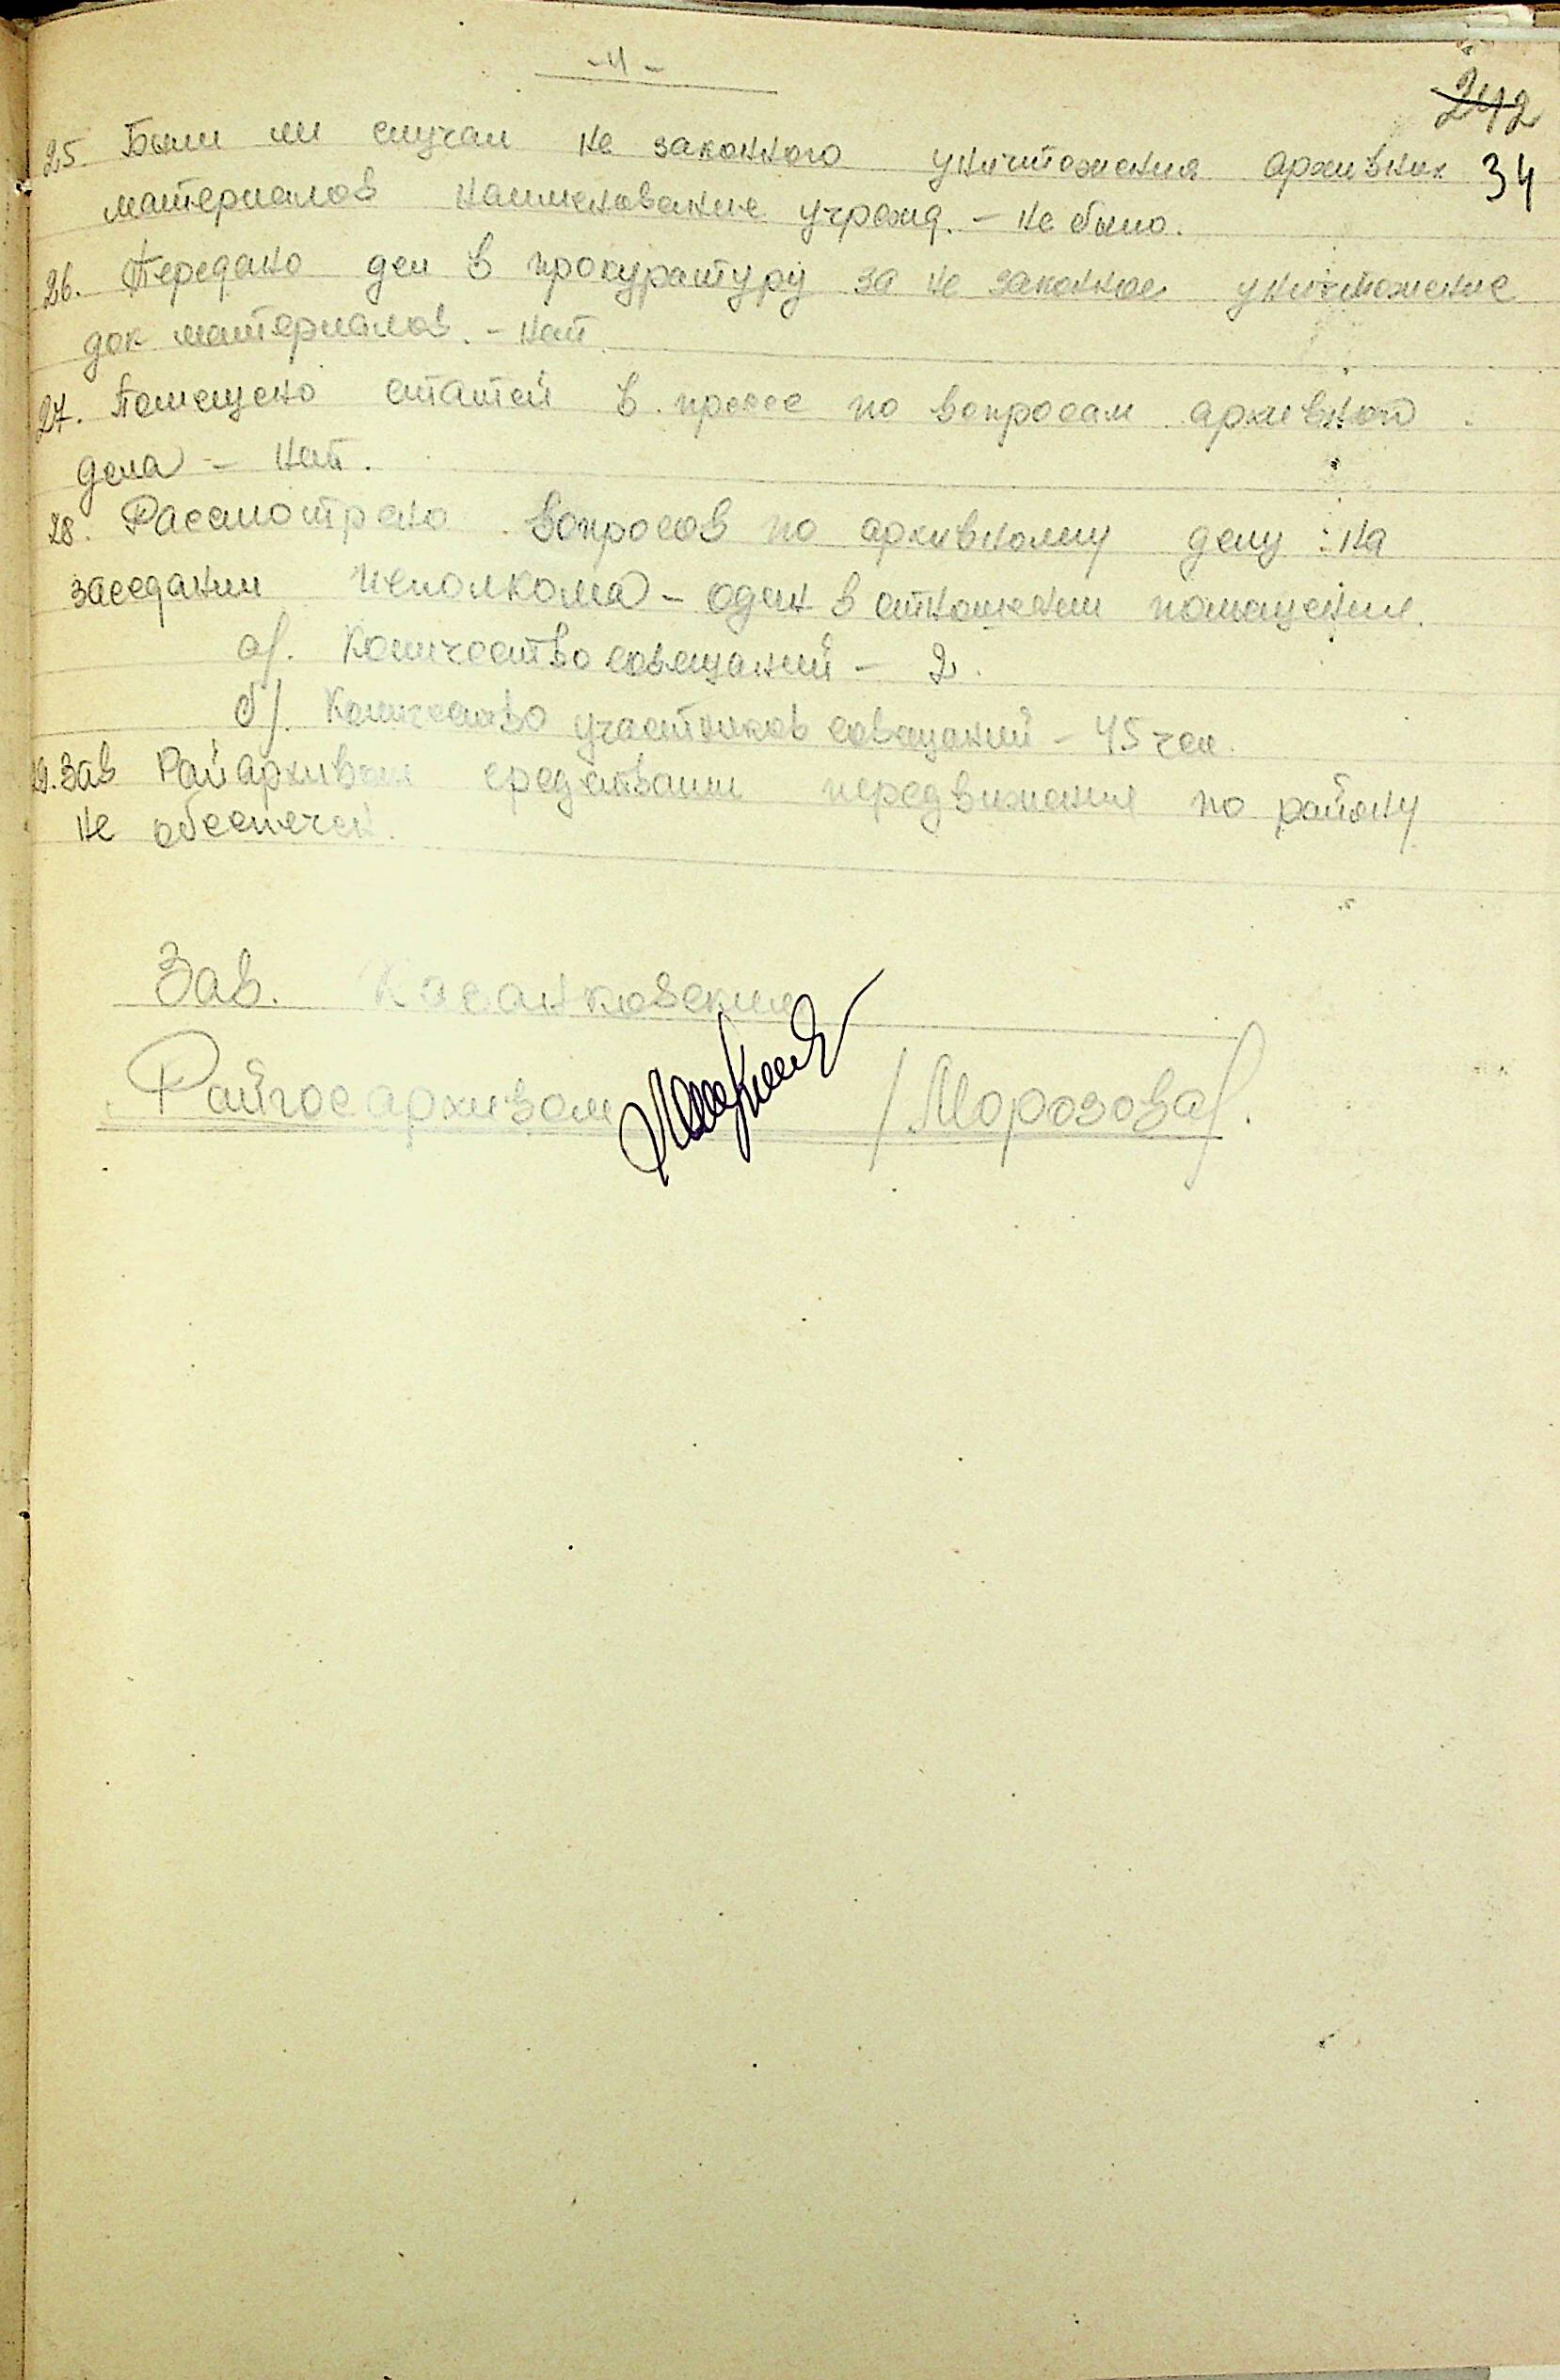 - 4 -
242
34
25. Были ли случаи не законного уничтожения архивных
материалов наименование учрежд. - не было.
26. Передано дел в прокуратуру за не законное уничтожение
док материалов. - нет.
27. Помещено статей в прессе по вопросам архивного
дела - нет.
28. Рассмотрено вопросов по архивному делу на
заседании исполкома - один в отношении помещения.
а/. Количество совещаний - 2.
б/. Количество участников совещаний - 45 чел.
29. Зав Райархивом средствами передвижения по району
не обеспечен.
Зав. Касанковским
Райгосархивом /Морозова/.